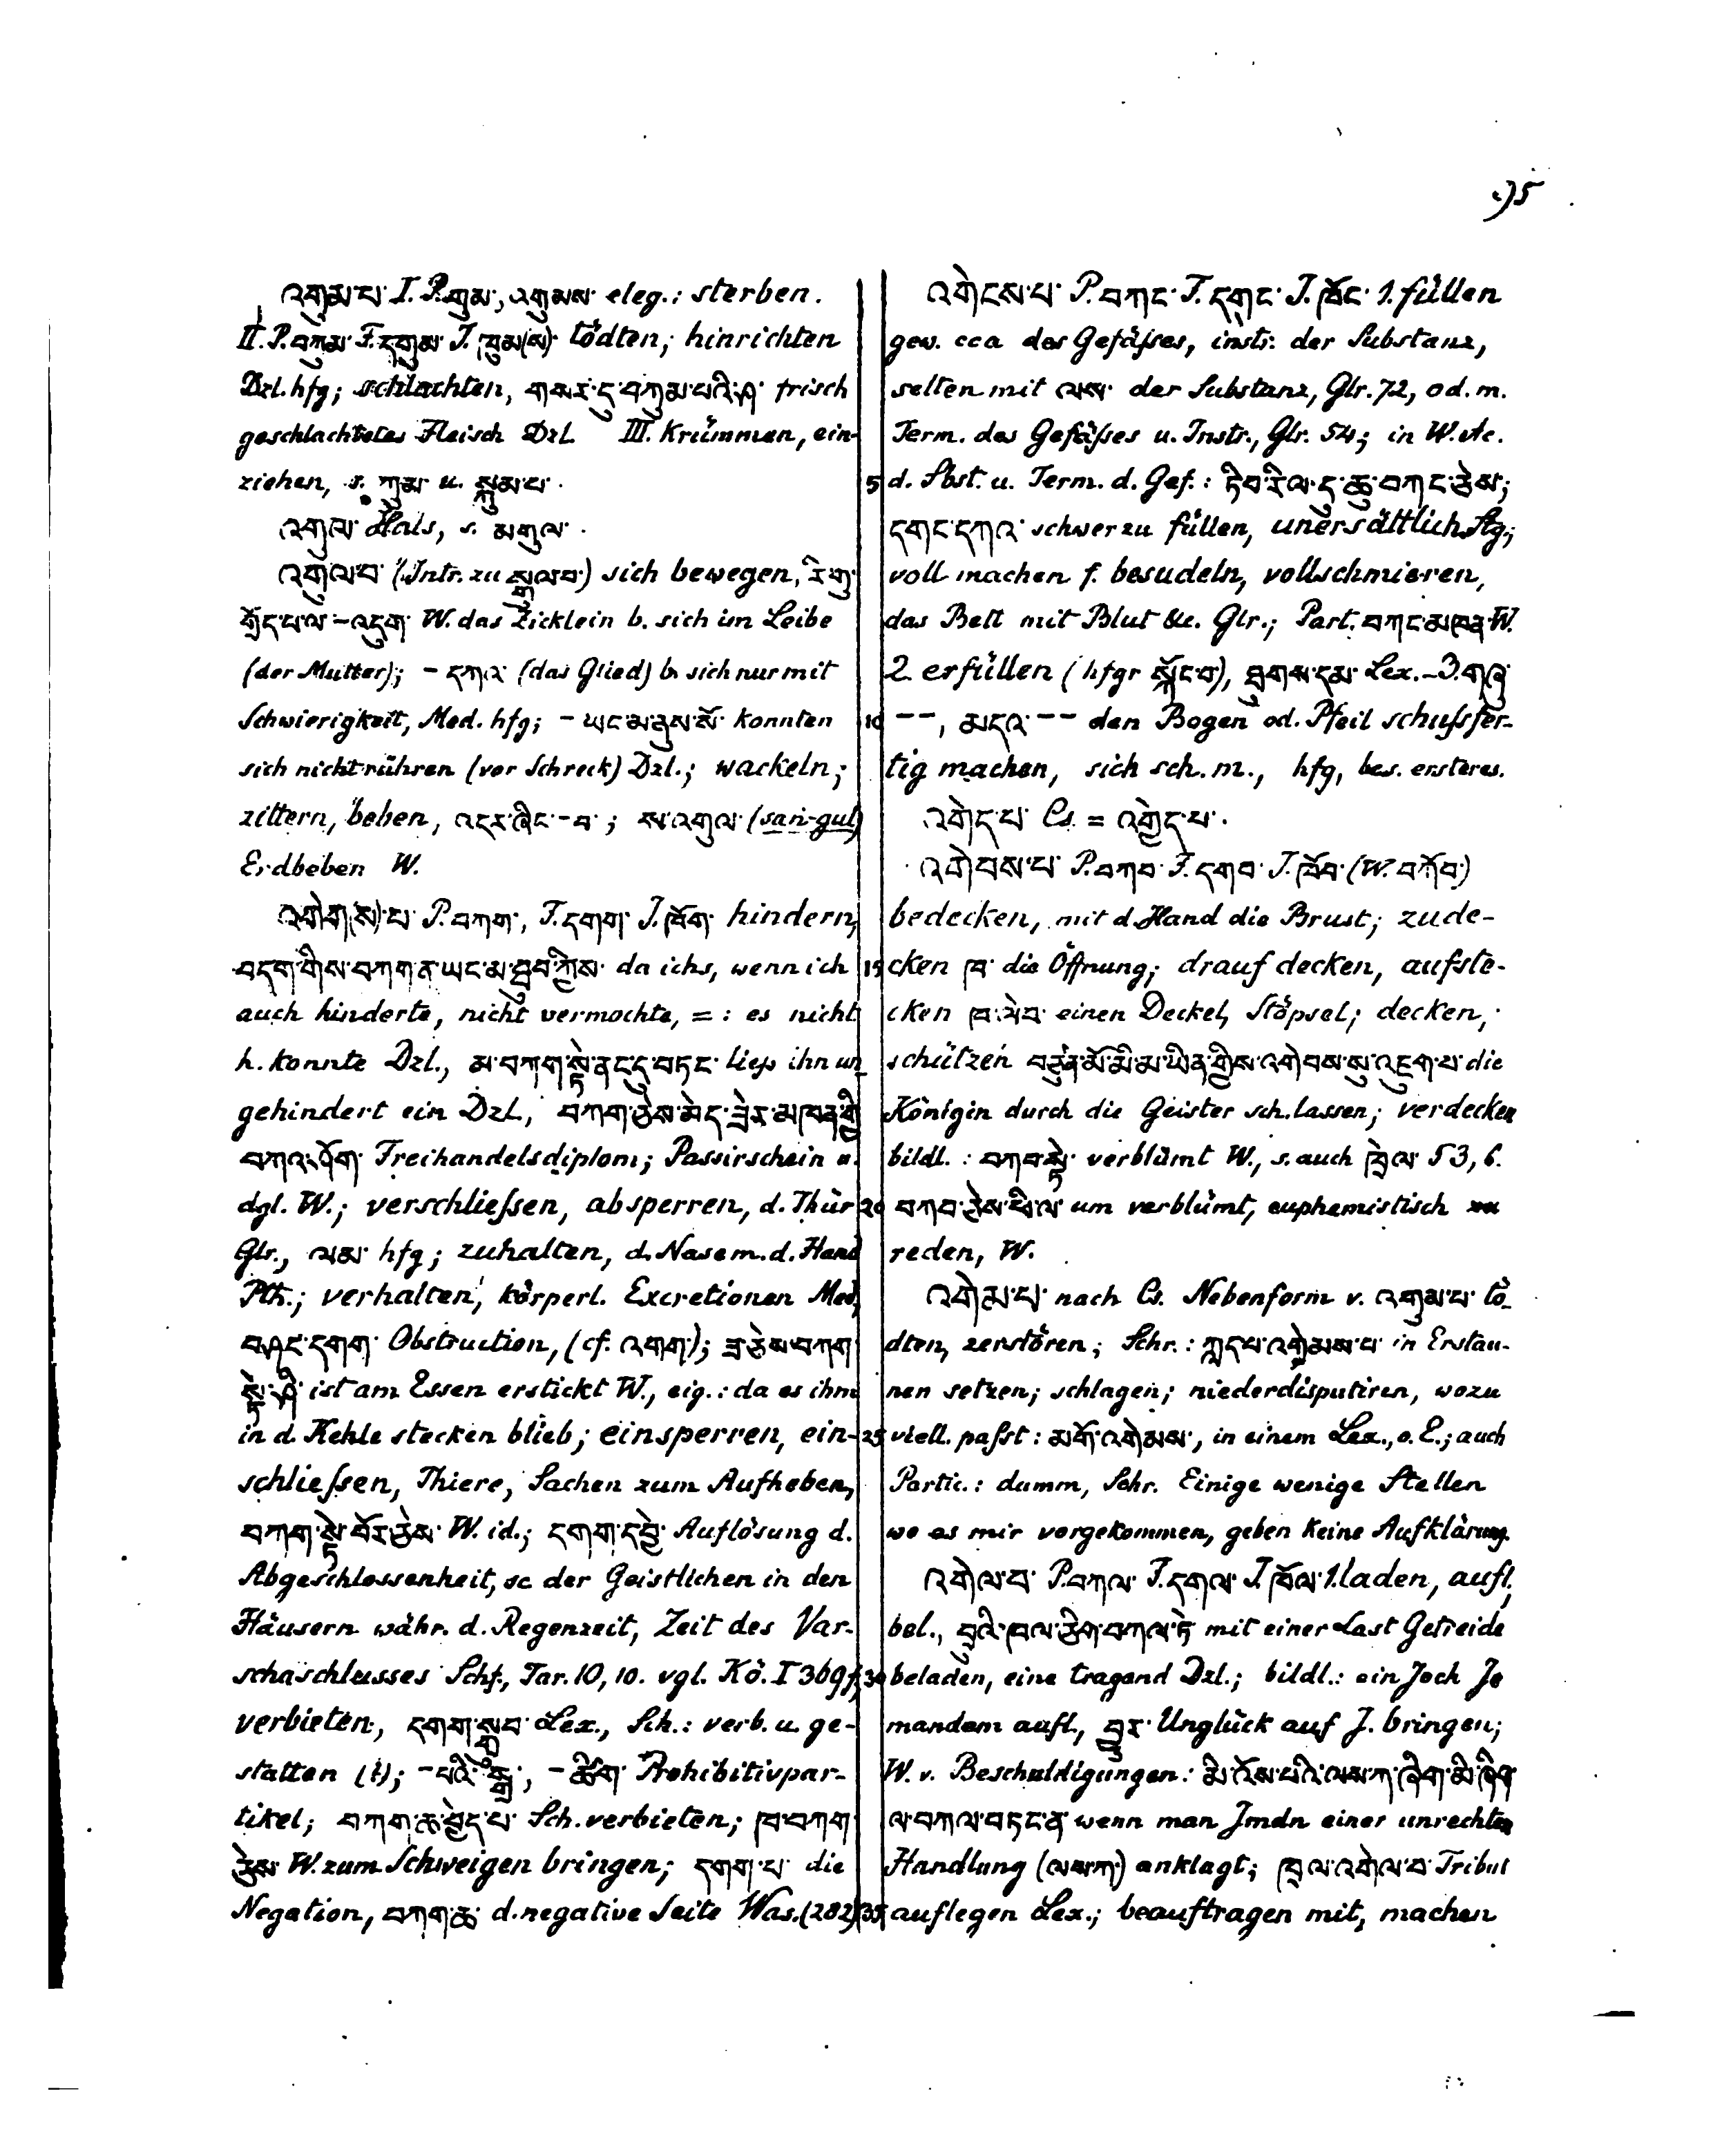 95
འགུམ་པ་ I. P. གུམ་, འགུམས་ eleg.: sterben.
II. P. བཀུམ་ F. དགུམ་ J. ཁུམ(ས)་ tödten; hinrichten
Dzl. hfg; schlachten, གསར་དུ་བཀུམ་པའི་ཤ་ frisch
geschlachtetes Fleisch Dzl. III. Krümmen, ein-
ziehen, s. ཀུམ་ u. སྐུམ་པ་.
འགུལ་ Hals, s. མགུལ་.
འགུལ་བ་ (Intr. zu སྒུལ་བ་) sich bewegen, རི་གུ་
གྲོད་པ་ལ་ – འདུག་ W. das Zicklein b. sich im Leibe
(der Mutter); – དཀའ་ (das Glied) b. sich nur mit
Schwierigkeit, Med. hfg; – ཡང་མ་ནུས་སོ་ konnten
sich nicht rühren (vor Schreck) Dzl.; wackeln;
zittern, beben, འདར་ཞིང་ – བ་; ས་འགུལ་ (saṅ-gul)
Erdbeben W.
འགེག(ས)་པ་ P. བཀག་, F. དགག་ J. ཁོག་ hindern,
བདག་གིས་བཀག་ན་ཡང་མ་ཐུབ་ཀྱིས་ da ichs, wenn ich
auch hinderte, nicht vermochte, =: es nicht
h. konnte Dzl., མ་བཀག་སྟེ་ནང་དུ་བཏང་ liess ihn un-
gehindert ein Dzl., བཀག་ཅེས་མེད་ཟེར་མཁན་གྱི་
བཀའ་ཤོག་ Freihandelsdiplom; Passirschein u.
dgl. W.; verschliessen, absperren, d. Thür
Glr., ལམ་ hfg; zuhalten, d. Nase m. d. Hand
Pth.; verhalten, körperl. Excretionen Med,
བཤང་དགག་ Obstruction, (cf. འགག་); ཟ་ཅེས་བཀག་
སྟེ་ཤི་ ist am Essen erstickt W., eig.: da es ihm
in d. Kehle stecken blieb; einsperren, ein-
schliessen, Thiere, Sachen zum Aufheben,
བཀག་སྟེ་བོར་ཅེས་ W. id.; དགག་དབྱེ་ Auflösung d.
Abgeschlossenheit, sc. der Geistlichen in den
Häusern währ. d. Regenzeit, Zeit des Var-
schaschlusses Schf., Tar. 10, 10. vgl. Kö. I 369 f,
verbieten, དགག་སྒྲུབ་ Lex., Sch.: verb. u. ge-
statten (?); – པའི་སྒྲ་, – ཚིག་ Prohibitivpar-
tikel; བཀག་ཆ་བྱེད་པ་ Sch. verbieten; ཁ་བཀག་
ཅེས་ W. zum Schweigen bringen; དགག་པ་ die
Negation, བཀག་ཆ་ d. negative Seite Was. (282)
འགེངས་པ་ P. བཀང་ F. དགང་ J. ཁོང་ 1. füllen
gew. cca des Gefässes, instr. der Substanz,
selten mit ལས་ der Substanz, Glr. 72, od. m.
Term. des Gefässes u. Instr., Glr. 54; in W. Ac.
5 d. Sbst. u. Term. d. Gef.: ཏིབ་རིལ་དུ་ཆུ་བཀང་ཅེས;
དགང་དཀའ་ schwer zu füllen, unersättlich Stg.;
voll machen f. besudeln, vollschmieren,
das Bett mit Blut &c. Glr.; Part. བཀང་མཁན་ W.
2. erfüllen (hfgr སྐོང་བ་), ཐུགས་དམ་ Lex. – 3. གཞུ་
10 – –, མདའ་ – – den Bogen od. Pfeil schussfer-
tig machen, sich sch. m., hfg, bes. ersteres.
འགེད་པ་ Cs. = འགྱེད་པ་.
འགེབས་པ་ P. བཀབ་ F. དགབ་ J. ཁོབ་ (W. བཀོབ་)
bedecken, mit d. Hand die Brust; zude-
15 cken ཁ་ die Öffnung; drauf decken, aufste-
cken ཁ་ལེབ་ einen Deckel, Stöpsel; decken,
schützen བཙུན་མོ་མི་མ་ཡིན་གྱིས་འགེབས་སུ་འཇུག་པ་ die
Königin durch die Geister sch. lassen; verdecken
bildl.: བཀབ་སྟེ་ verblümt W., s. auch ཁྲེལ་ 53, 6.
20 བཀབ་ཅེས་ཕི་ལ་ um verblümt, euphemistisch zu
reden, W.
འགེམ་པ་ nach Cs. Nebenform v. འགུམ་པ་ tö-
dten, zerstören; Schr.: ཀླད་པ་འགེམས་པ་ in Erstau-
nen setzen; schlagen; niederdisputiren, wozu
25 viell. passt: མགོ་འགེམས་, in einem Lex., o. E.; auch
Partic.: dumm, Schr. Einige wenige Stellen
wo es mir vorgekommen, geben keine Aufklärung.
འགེལ་བ་ P. བཀལ་ F. དགལ་ J. ཁོལ་ 1. laden, aufl,
bel., བྲུའི་ཁལ་ཅིག་བཀལ་ཏེ་ mit einer Last Getreide
30 beladen, eine tragend Dzl.; bildl.: ein Joch Je
mandem aufl., བྱུར་ Unglück auf J. bringen;
W. v. Beschuldigungen: མི་འོས་པའི་ལས་ཀ་ཞིག་མི་ཞིག་
ལ་བཀལ་བཏང་ན་ wenn man Jmdn einer unrechten
Handlung (ལས་ཀ་) anklagt; ཁྲལ་འགེལ་བ་ Tribut
35 auflegen Lex.; beauftragen mit, machen